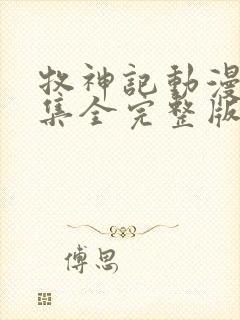 牧神記動漫
集全完整版
傅思